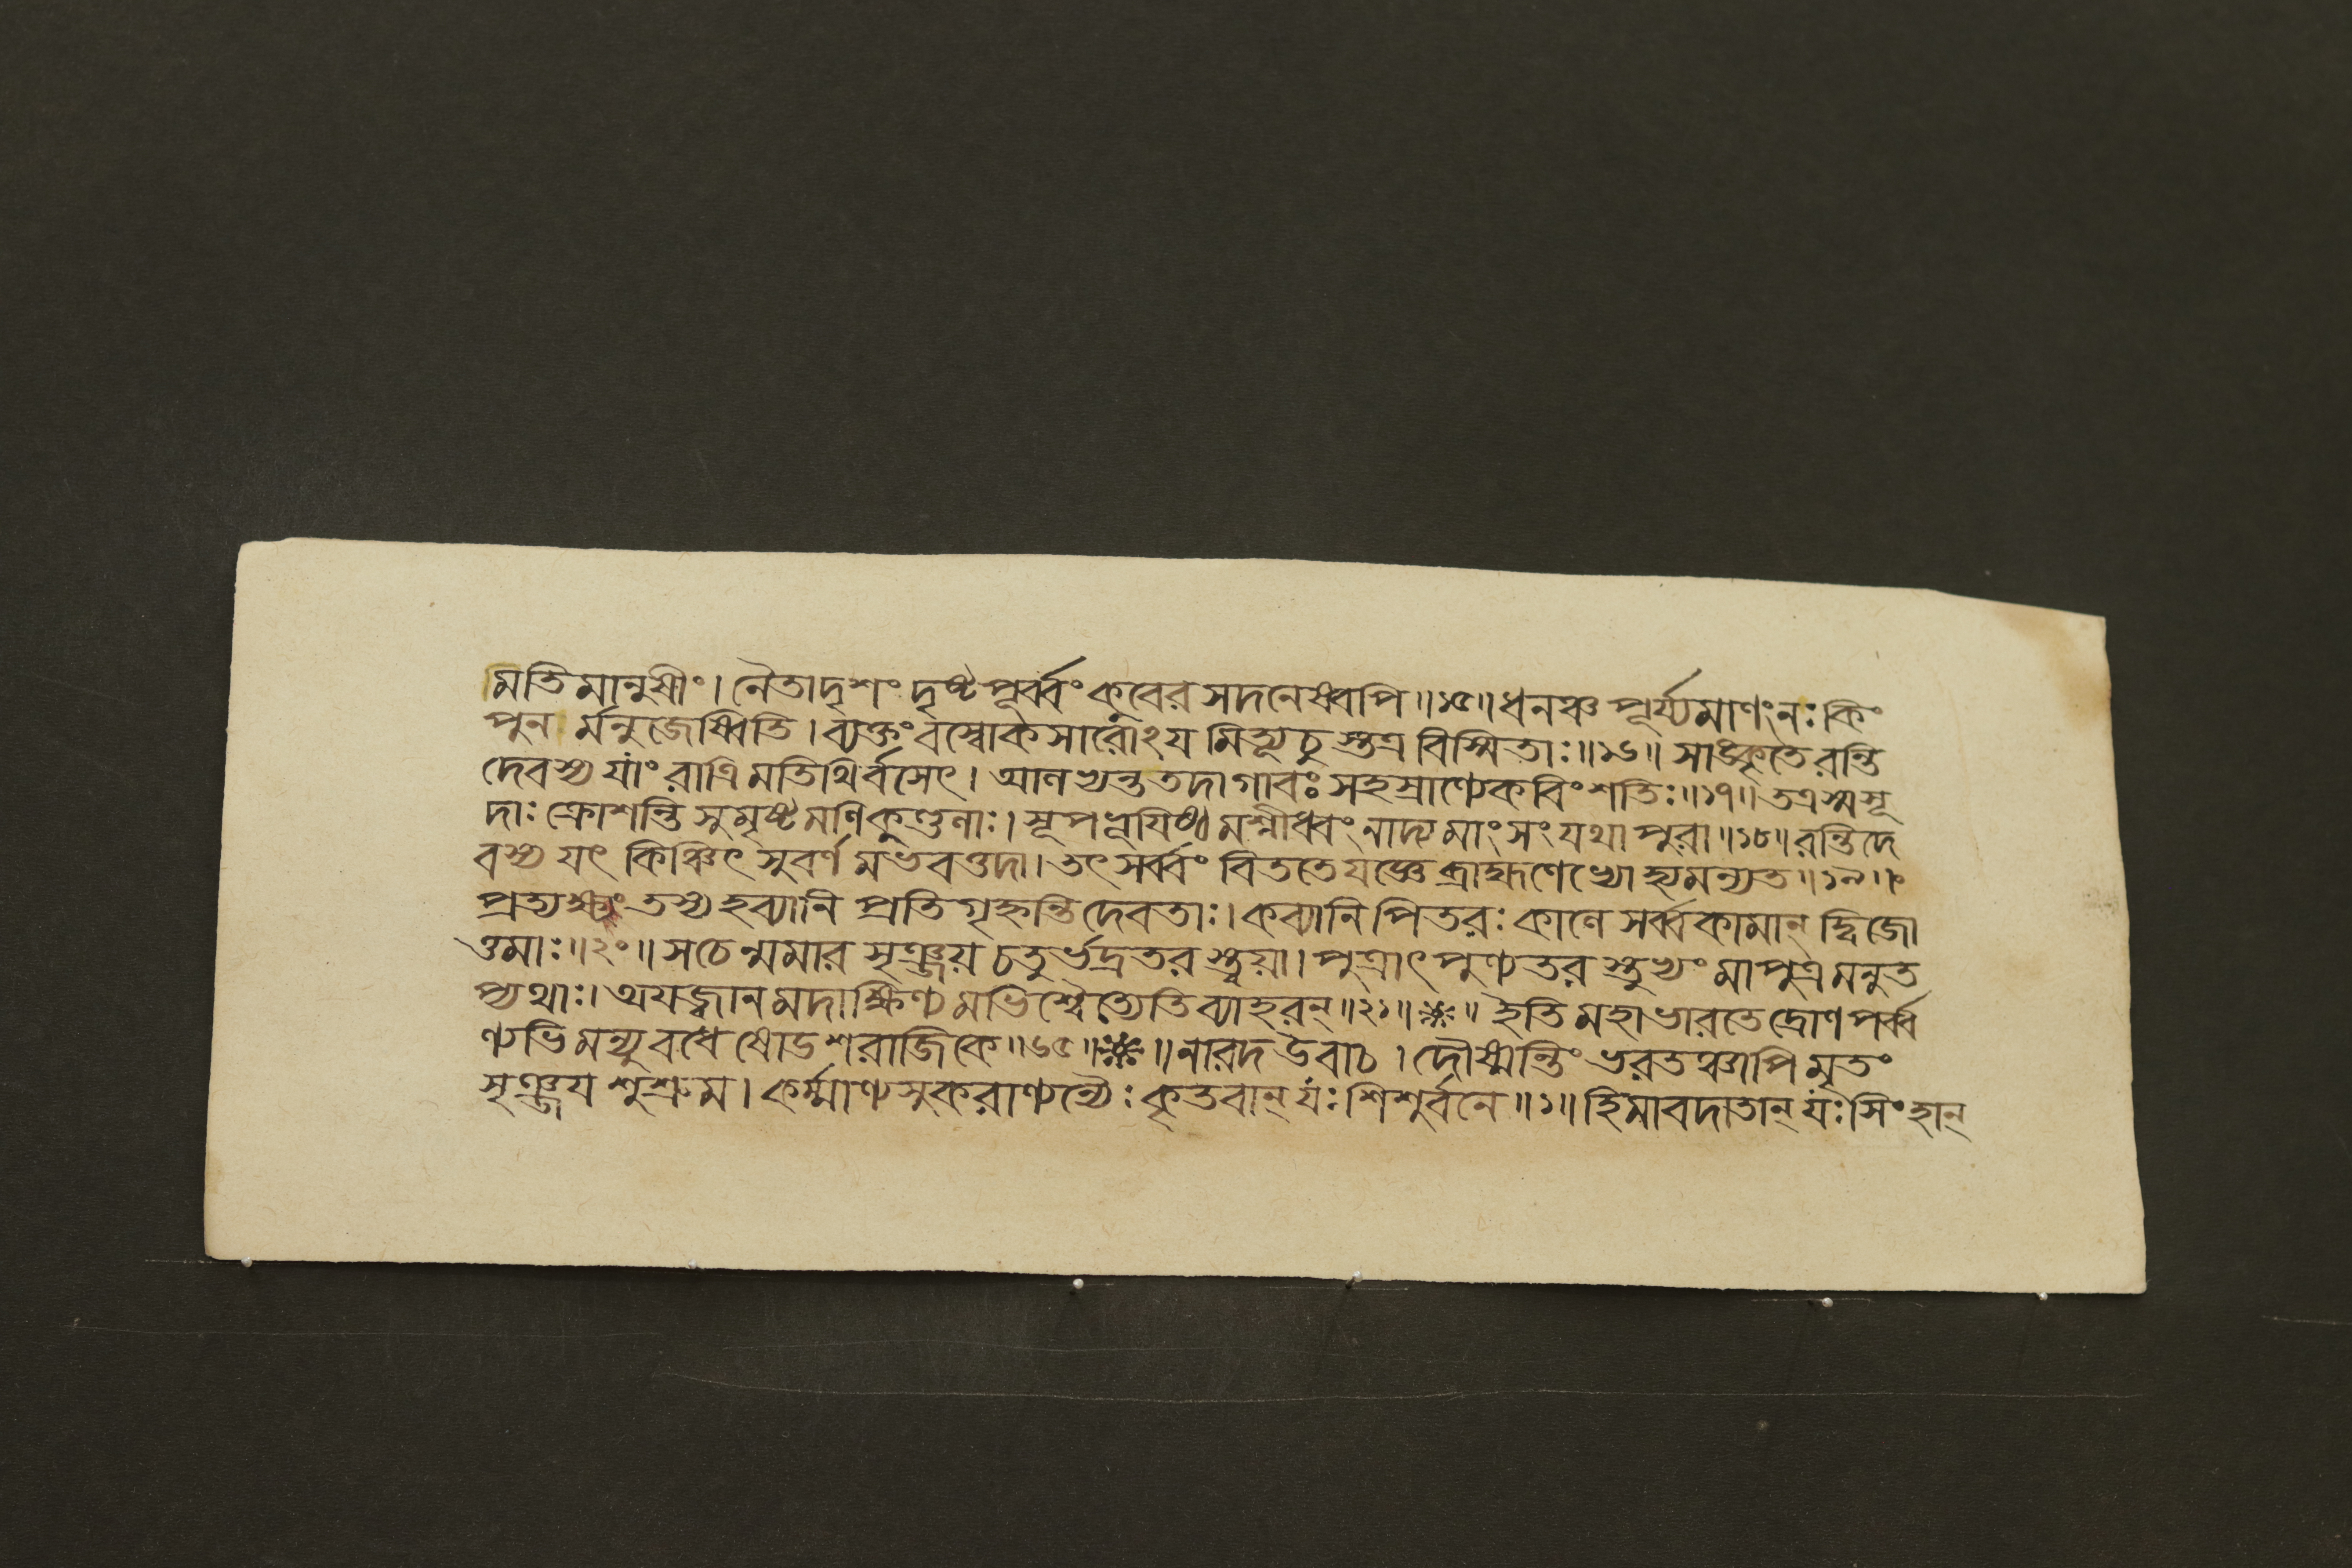 মতি মানুষীং। নৈতাদৃশং দৃষ্টপূর্ব্বং কুবের সদনেষ্বপি॥১৫॥ ধনঞ্চ পূর্য্যমাণং নঃ কিং
পুন র্মনুজেষ্বিতি। ব্যক্তং বস্বোকসারোঽয় মিত্যূচু স্তত্র বিস্মিতাঃ॥১৬॥ সাঙ্কৃতে রন্তি
দেবস্য যাং রাত্রি মতিথির্বসেৎ। আলভ্যন্ত তদা গাবঃ সহস্রাণ্যেকবিংশতিঃ॥১৭॥ তত্রস্ম সূ
দাঃ ক্রোশন্তি সুমৃষ্ট মণি কুণ্ডলাঃ। সূপম্ভূয়িষ্ঠ মশ্নীধ্বং নাদ্য মাংসং যথা পুরা॥১৮॥ রন্তিদে
বস্য যৎ কিঞ্চিৎ সুবর্ণ মভবত্তদা। তৎ সর্ব্বং বিততে যজ্ঞে ব্রাহ্মণেভ্যো হ্যমন্যত॥১৯॥
প্রত্যক্ষং তস্য হব্যানি প্রতিগৃহ্নন্তি দেবতাঃ। কব্যানি পিতরঃ কালে সর্ব্বকামান্ দ্বিজো
ত্তমাঃ॥২০॥ স চেন্মমার সৃঞ্জয় চতুর্ভদ্রতর স্ত্বয়া। পুত্রাৎ পুণ্যতর স্তুভ্যং মা পুত্র মনুত
প্যথাঃ। অযজ্বান মদাক্ষিণ্য মভিশ্বৈত্যেতি ব্যাহরন্॥২১॥ ইতি মহাভারতে দ্রোণপর্ব্ব
ণ্যভিমন্যুবধে ষোডশরাজিকে॥৬৫॥ নারদ উবাচ। দৌষ্মন্তিং ভরতঞ্চাপি মৃতং
সৃঞ্জয় শুশ্রুম। কর্ম্মাণ্যসুকরাণ্যন্যৈঃ কৃতবান্ যঃ শিশুর্বনে॥১॥ হিমাবদাতান্ যঃ সিংহান্